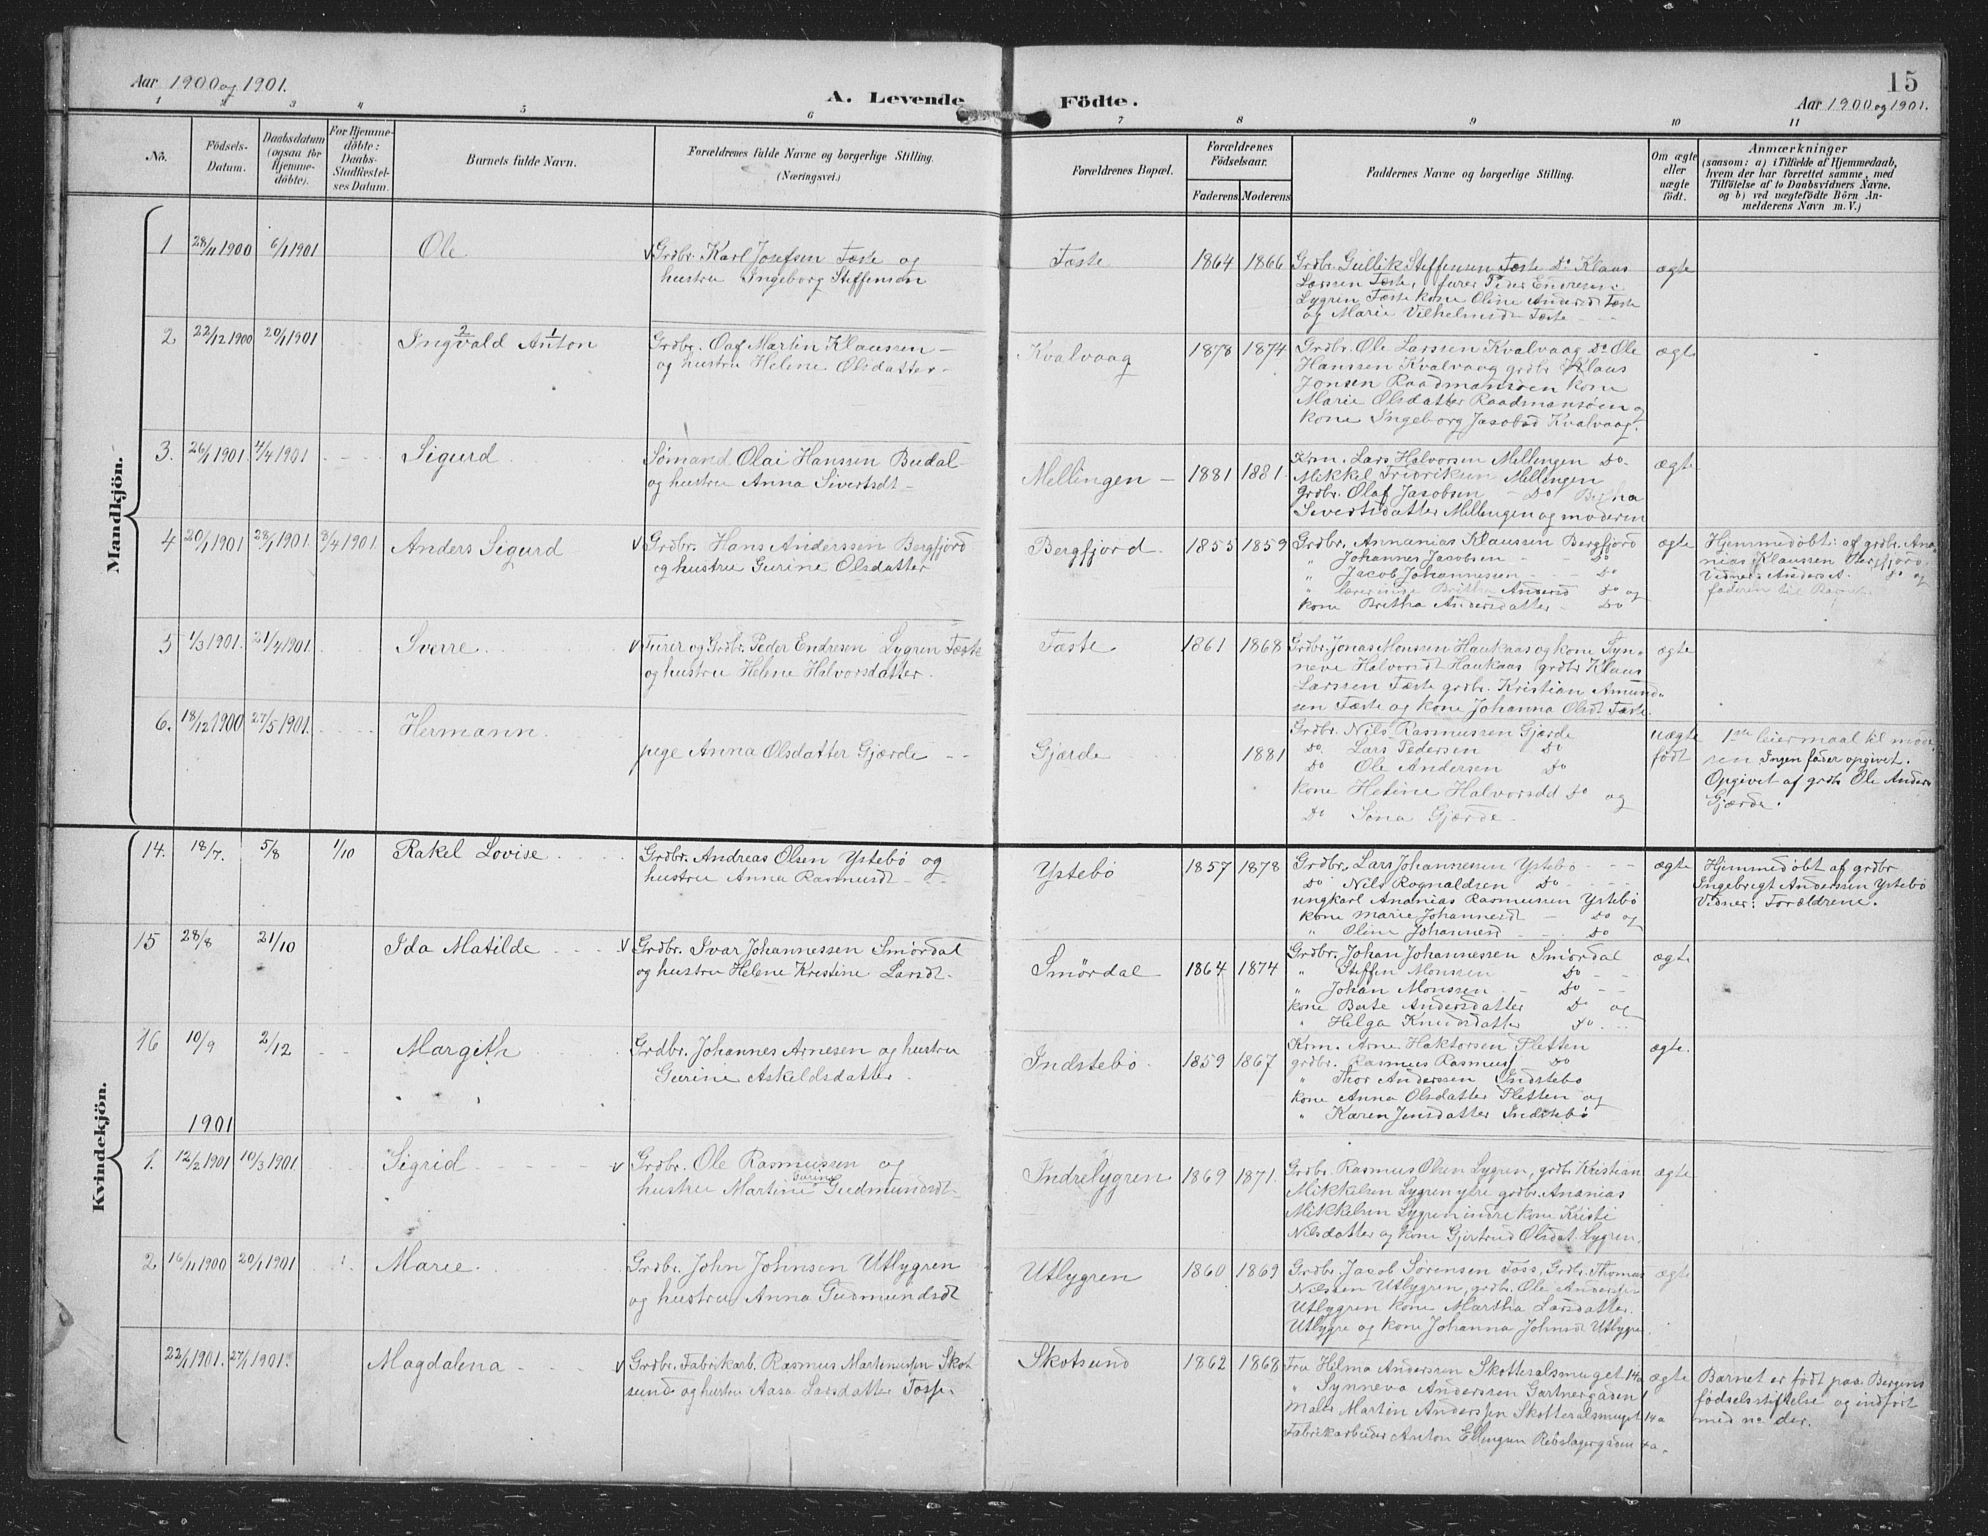 15
Aar 1900 og 1901.
A. Levende Födte.
Aar 1900 og 1901.
1 2 3 4 5 6 7 8 9 10 11
No.
Födsels-Datum.
Daabsdatum (ogsaa for Hjemme-döbte).
For Hjemme-döbte: Daabs-Stadfæstel-ses Datum.
Barnets fulde Navn.
Forældrenes fulde Navne og borgerlige Stilling.
(Næringsvei.)
Forældrenes Bopæl.
Forældrenes Födselsaar.
Faderens Moderens
Faddernes Navne og borgerlige Stilling.
Om ægte eller uægte födt.
Anmærkninger
(saasom: a) i Tilfælde af Hjemmedaab, hvem der har forrettet samme, med Tilföielse af to Daabsvidners Navne, og b) ved uægtefödte Börn An-melderens Navn m. V.)
Mandkjön.
1 28/11 1900 6/1 1901 Ole
Grdbr. Karl Josefsen Tæste og
hustru Ingeborg Steffensen
Tæste 1864 1866
Grdbr. Gullik Steffensen Tæste Do Klaus
Larssen Tæste, furer Peder Endresen
Lygren Tæste kone Oline Andersdt Tæste
og Marie Vilhelmsdt Tæste
ægte
2 22/12 1900 20/1 1901 Ingvald Anton
2 1
Grdbr. Oaf Martin Klaussen
og hustru Helene Olsdatter
Kvalvaag 1878 1874
Grdbr. Ole Larssen Kvalvaag Do Ole
Hanssen Kvalvaag grdbr Klaus
Jonsen Raadmansöen kone
Marie Olsdatter Raadmansöen og
kone Ingeborg Jacobsd Kvalvaag.
ægte
3. 26/1 1901. 4/4 1901 Sigurd
Sømand Olai Hanssen Budal
og hustru Anna Sivertsdt
Mellingen 1881 1881.
Krm. Lars Halvorsen Mellingen Do.
Mikkel Fridriksen Mellingen
grdbr. Olaf Jacobsen Do
Sivertsdatter Mellingen og moderen
ægte
4 20/1 1901 28/1 1901. 8/4 1901. Anders Sigurd
Grdbr. Hans Anderssen Bergfjord
og hustru Gurine Olsdatter
Bergfjord. 1855 1859
Grdbr. Annanias Klaussen Bergfjord
" Johannes Jacobsen Do
" Jacob Johannessen Do
" lærerinde Britha Andersd Do og
kone Bretha Andersdatter Do
ægte
Hjemmedøbt: af grdbr. Ana-
nias Klaussen Bergfjord.
Vidner: Anders A. Do og
faderen til Barnet.
5 1/3 1901. 21/4 1901. Sverre
Furer og Grdbr. Peder Endresen Lygren Tæste
og hustru Helene Halvorsdatter.
Tæste 1861 1868
Grdbr. Jonas Monssen Haukaas og kone Syn-
neve Halvorsdt Haukaas grdbr Klaus
Larssen Tæste grdbr. Kristian Amund-
sen Tæste og kone Johanna Olsdt Tæste.
ægte
6. 18/12 1900 27/5 1901. Hermann.
pige Anna Olsdatter Gjærde
Gjærde 1881
Grdbr. Nils Rasmussen Gjærde
Do. Lars Pedersen Do
Do Ole Andersen Do
kone Heline Halvorsdd Do og
Do Gjærde
uægte
födt
1ste leiermaal til mode-
ren Ingen fader opgivet.
Opgivet af grdb Ole Anders
Gjærde.
Kvindekjön.
14. 18/7. 5/8 1/10 Rakel Lovise
Grdbr. Andreas Olsen Ystebø og
hustru Anna Rasmusdt
Ystebø 1857 1878
Grdbr. Lars Johannessen Ystebø
Do Nils Rognaldsen Do
ungkarl Ananias Rasmussen Ystebø
kone Marie Johannesdt Do og
" Oline Johannesd Do
ægte
Hjemmedøbt af grdbr
Ingebrigt Anderssen Ystebø
Vidner: Forældrene.
15 28/8 21/10 Ida Matilde
Grdbr. Ivar Johannessen Smørdal
og hustru Helene Kristine Larsdt
Smørdal 1864 1874
Grdbr. Johan Johannessen Smørdal
" Steffen Monssen Do
" Johan Monssen Do
kone Berte Andersdatter Do og
" Helga Knudsdatter Do
ægte
16 10/9 2/12 Margith
Grdbr. Johannes Arnesen og hustru
Gurine Askeldsdatter
Indstebø. 1859 1867
Krm. Arne Haktorsen Fletten
grdbr. Rasmus Rasmus! Do
" Thor Anderssen Indstebø
kone Anna Olsdatter Fletten og
" Karen Jensdatter Indstebø
ægte.
1901
1. 12/2 1901 10/3 1901. Sigrid
Grdbr. Ole Rasmussen og
hustru Martine Gurine Gudmundsdt
Indrelygren 1869 1871.
Grdbr. Rasmus Olsen Lygren, grdbr Kristian
Mikkelsen Lygren ytre grdbr. Ananias
Mikkelsen Lygren indre kone Kristi
Nilsdatter og kone Gjertrud Olsdat Lygren.
ægte
2 16/11 1900 20/1 1901 Marie
Grdbr. John Johnsen Utlygren
og hustru Anna Gudmundsdt
Utlygren 1860 1869
Grdbr. Jacob Sørensen Foss, Grdbr. Thomas
Nilssen Utlygren, grdbr. Ole Anderssen
Utlygren kone Martha Larsdatter
Utlygre og kone Johanna Johnsdt Utlygre
ægte
22/1 1901. 27/1 1901. Magdalena
Grdbr. Fabrikarb. Rasmus Martinussen Skot
sund og hustru Aasa Larsdatter Fosse
Skotsund 1862 1868
Fru Helma Anderssen Skottesalsmuget 14a
" Synneva Anderssen Gartnergaden 1
Maler Martin Anderssen Skottesalsmuget 14a
Fabrikarbeider Anton Ellingsen Rebslagergaden 4a
ægte
Barnet er født paa Bergens
fødselsstiftelse og indført
med no der.